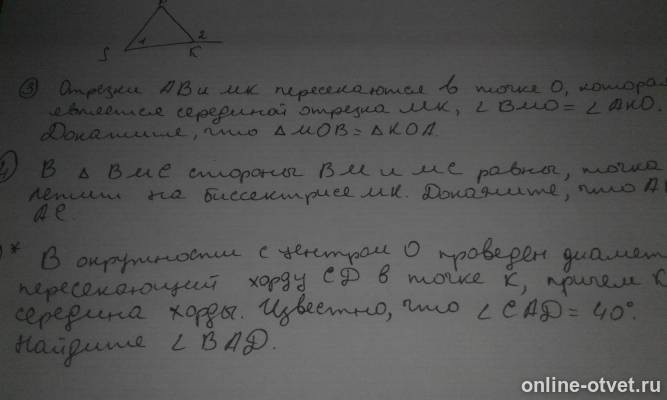 S 1 2 K
③ Отрезки АВ и МК пересекаются в точке О, котора
является серединой отрезка МК, ∠ВМО = ∠АКО.
Докажите, что △МОВ = △КОА.
4) В △ ВМС стороны ВМ и МС равны, точка
лежит на биссектрисе МК. Докажите, что А
АС.
)* В окружности с центром О проведен диамет
пересекающий хорду CD в точке К, причем К
середина хорды. Известно, что ∠CAD = 40°.
Найдите ∠BAD.
online-otvet.ru